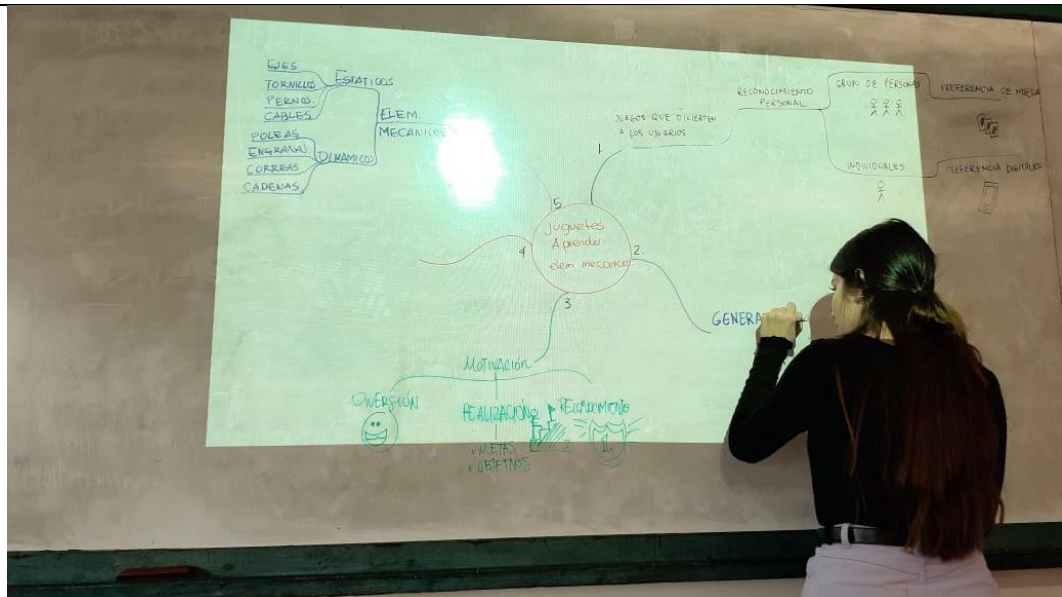 EJES
TORNILLOS
PERNOS.
CABLES
ESTATICOS
POLEAS
ENGRANAJ.
CORREAS
CADENAS
DINAMICOS
ELEM.
MECANICOS
1.
JUEGOS QUE DIVIERTEN
A LOS USUARIOS
RECONOCIMIENTO
PERSONAL
GRUPO DE PERSONAS
PREFERENCIA DE MESA
INDIVIDUALES
PREFERENCIA DIGITALES
5.
Juguetes.
Aprender.
elem mecanico.
4
2
3
GENERA
MOTIVACIÓN
DIVERSIÓN
REALIZACIÓN
METAS
OBJETIVOS
RECONOCIMIENTO
1